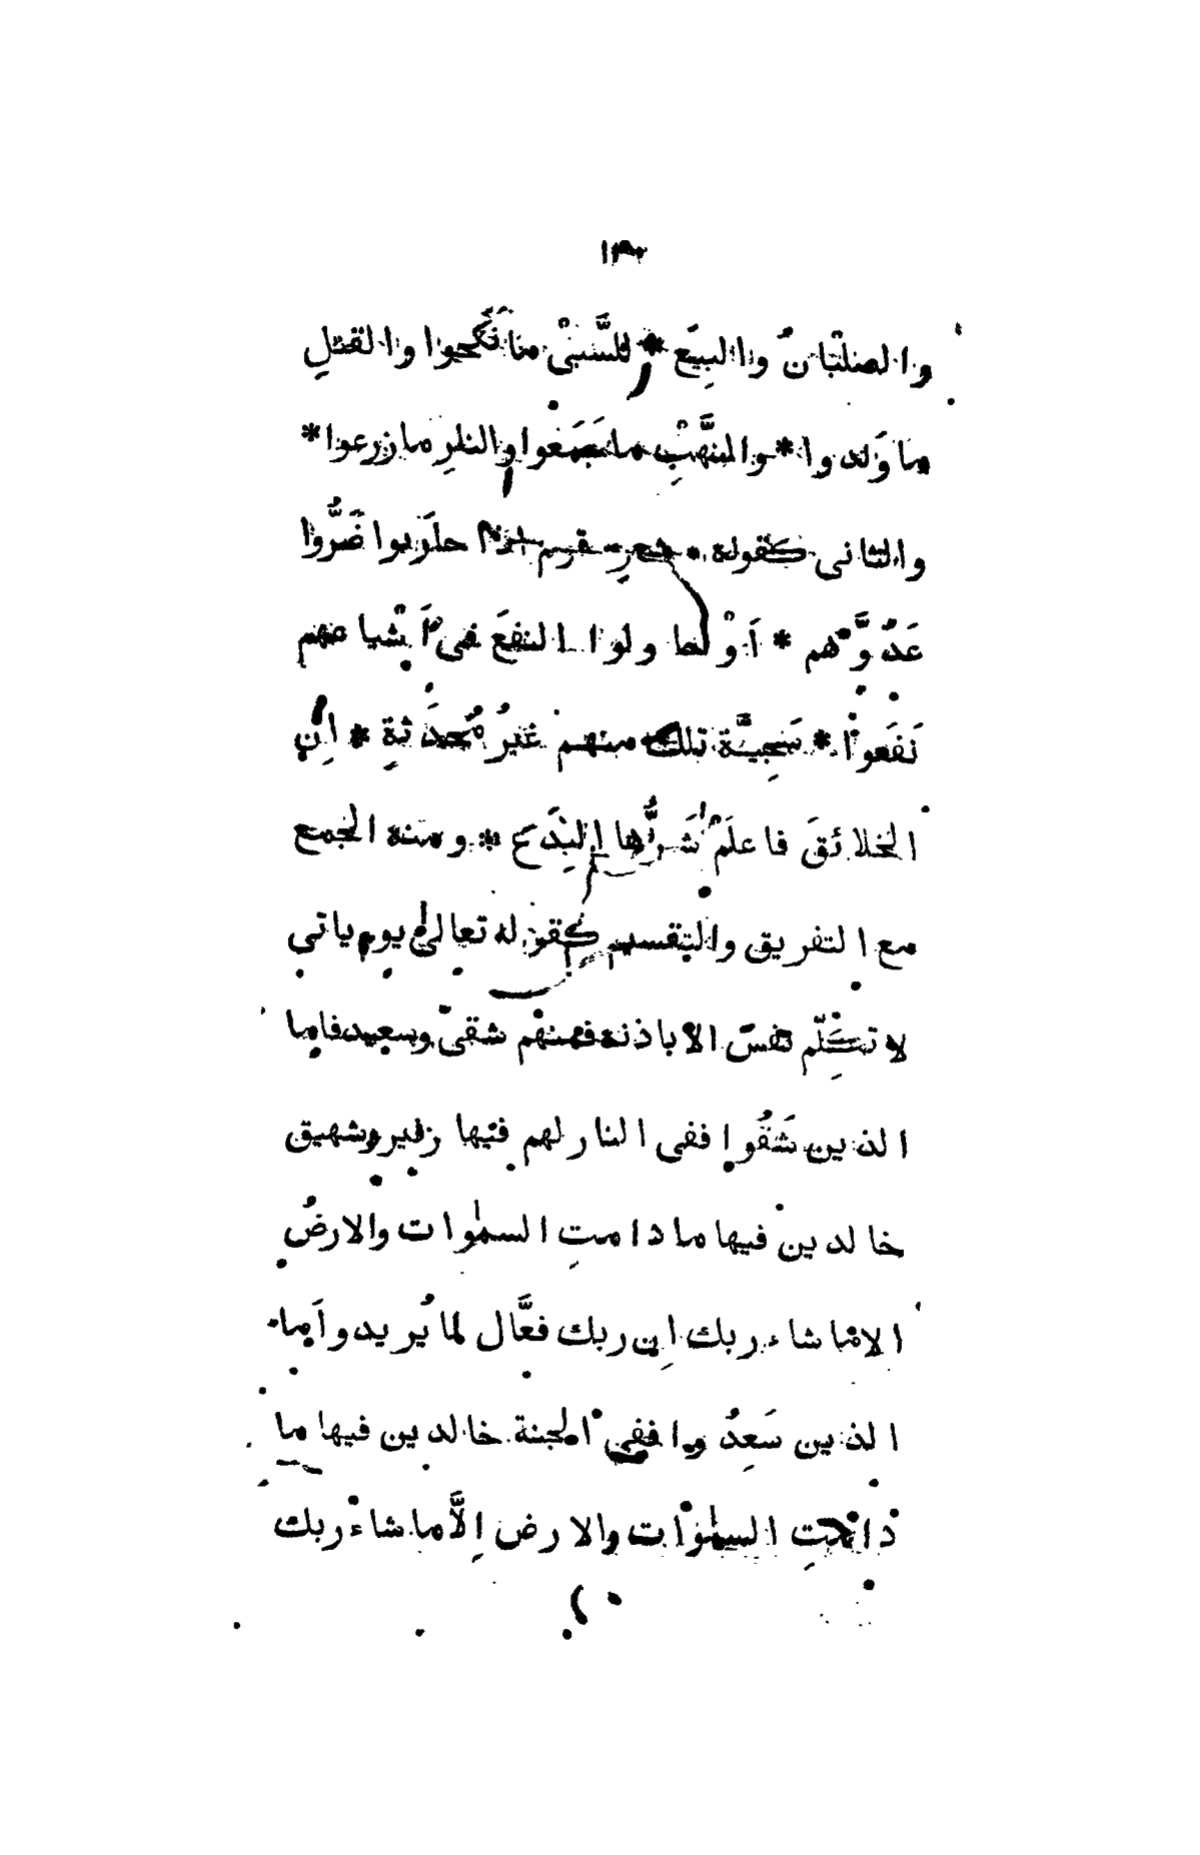 والصلبانُ والبِيَع * للسَّبْىِ ما نَكَحوا والقتلِ
ما وَلدوا * والنَّهْبِ ما جَمَعوا والنارِ ما زرعوا *
والثانى كقوله * شعر * قوم اذا حاربوا ضَرُّوا
عَدُوَّهم * اَوْ حاولوا النفعَ فى اَشْياعهم
نَفَعوا * سَجِيَّة تلك منهم غيرُ مُحدَثةٍ * اِن
الخلائقَ فاعلَمْ شَرُّها البِدَع * ومنه الجمع
مع التفريق والتقسيم كقوله تعالى يوم ياتى
لا تكَلّم نفسٌ الا باذنه فمنهم شقىّ وسعيد فاما
الذين شَقُوا ففى النار لهم فيها زفير وشهيق
خالدين فيها ما دامتِ السمٰوات والارضُ
الا ما شاء ربك اِن ربك فعَّال لما يُريد واَما
الذين سَعِدُوا ففى الجنة خالدين فيها ما
دامتِ السمٰوات والارض اِلَّا ما شاء ربك